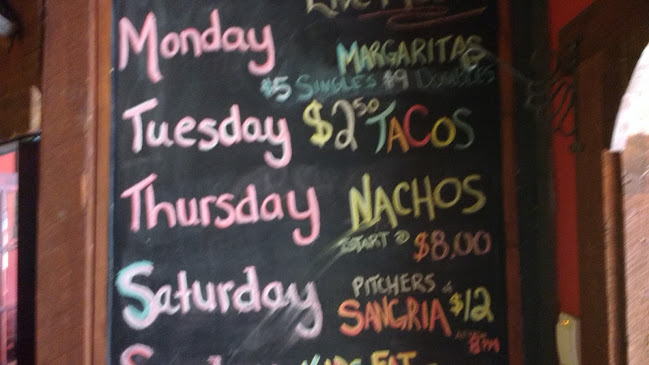 Monday MARGARITAS
$5 SINGLES $9 DOUBLES
Tuesday $2.50 TACOS
Thursday NACHOS
START @ $8.00
Saturday PITCHERS of
SANGRIA $12
8PM
KIDS EAT